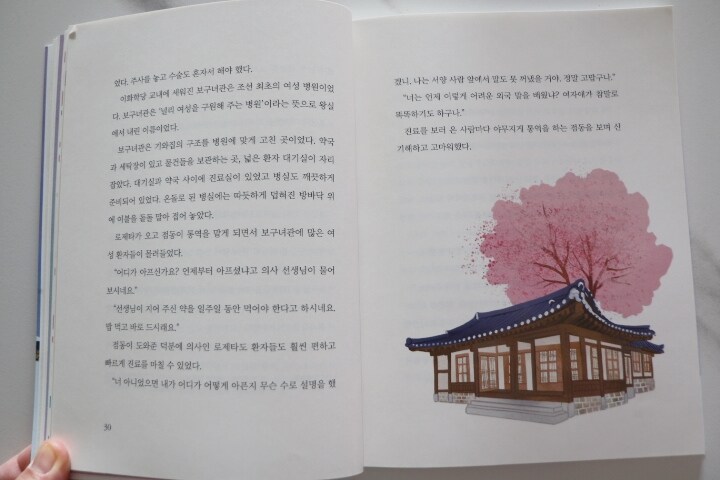 있다. 주사를 놓고 수술도 혼자서 해야 했다.
이화학당 교내에 세워진 보구녀관은 조선 최초의 여성 병원이었
다. 보구녀관은 '널리 여성을 구원해 주는 병원'이라는 뜻으로 왕실
에서 내린 이름이었다.
보구녀관은 기와집의 구조를 병원에 맞게 고친 곳이었다. 약국
과 세탁장이 있고 물건들을 보관하는 곳, 넓은 환자 대기실이 자리
잡았다. 대기실과 약국 사이에 진료실이 있었고 병실도 깨끗하게
준비되어 있었다. 온돌로 된 병실에는 따듯하게 덥혀진 방바닥 위
에 이불을 돌돌 말아 접어 놓았다.
로제타가 오고 점동이 통역을 맡게 되면서 보구녀관에 많은 여
성 환자들이 몰려들었다.
"어디가 아프신가요? 언제부터 아프셨냐고 의사 선생님이 물어
보시네요."
"선생님이 지어 주신 약을 일주일 동안 먹어야 한다고 하시네요.
밥 먹고 바로 드시래요."
점동이 도와준 덕분에 의사인 로제타도 환자들도 훨씬 편하고
빠르게 진료를 마칠 수 있었다.
"너 아니었으면 내가 어디가 어떻게 아픈지 무슨 수로 설명을 했
30
겠니. 나는 서양 사람 앞에서 말도 못 꺼냈을 거야. 정말 고맙구나."
"너는 언제 이렇게 어려운 외국 말을 배웠냐? 여자애가 참말로
똑똑하기도 하구나."
진료를 보러 온 사람마다 야무지게 통역을 하는 점동을 보며 신
기해하고 고마워했다.